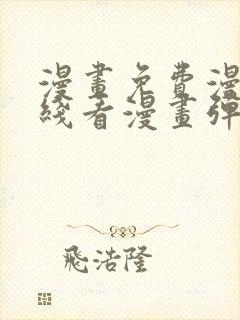 漫畫免費漫
綫看漫畫彈
飛浩隆